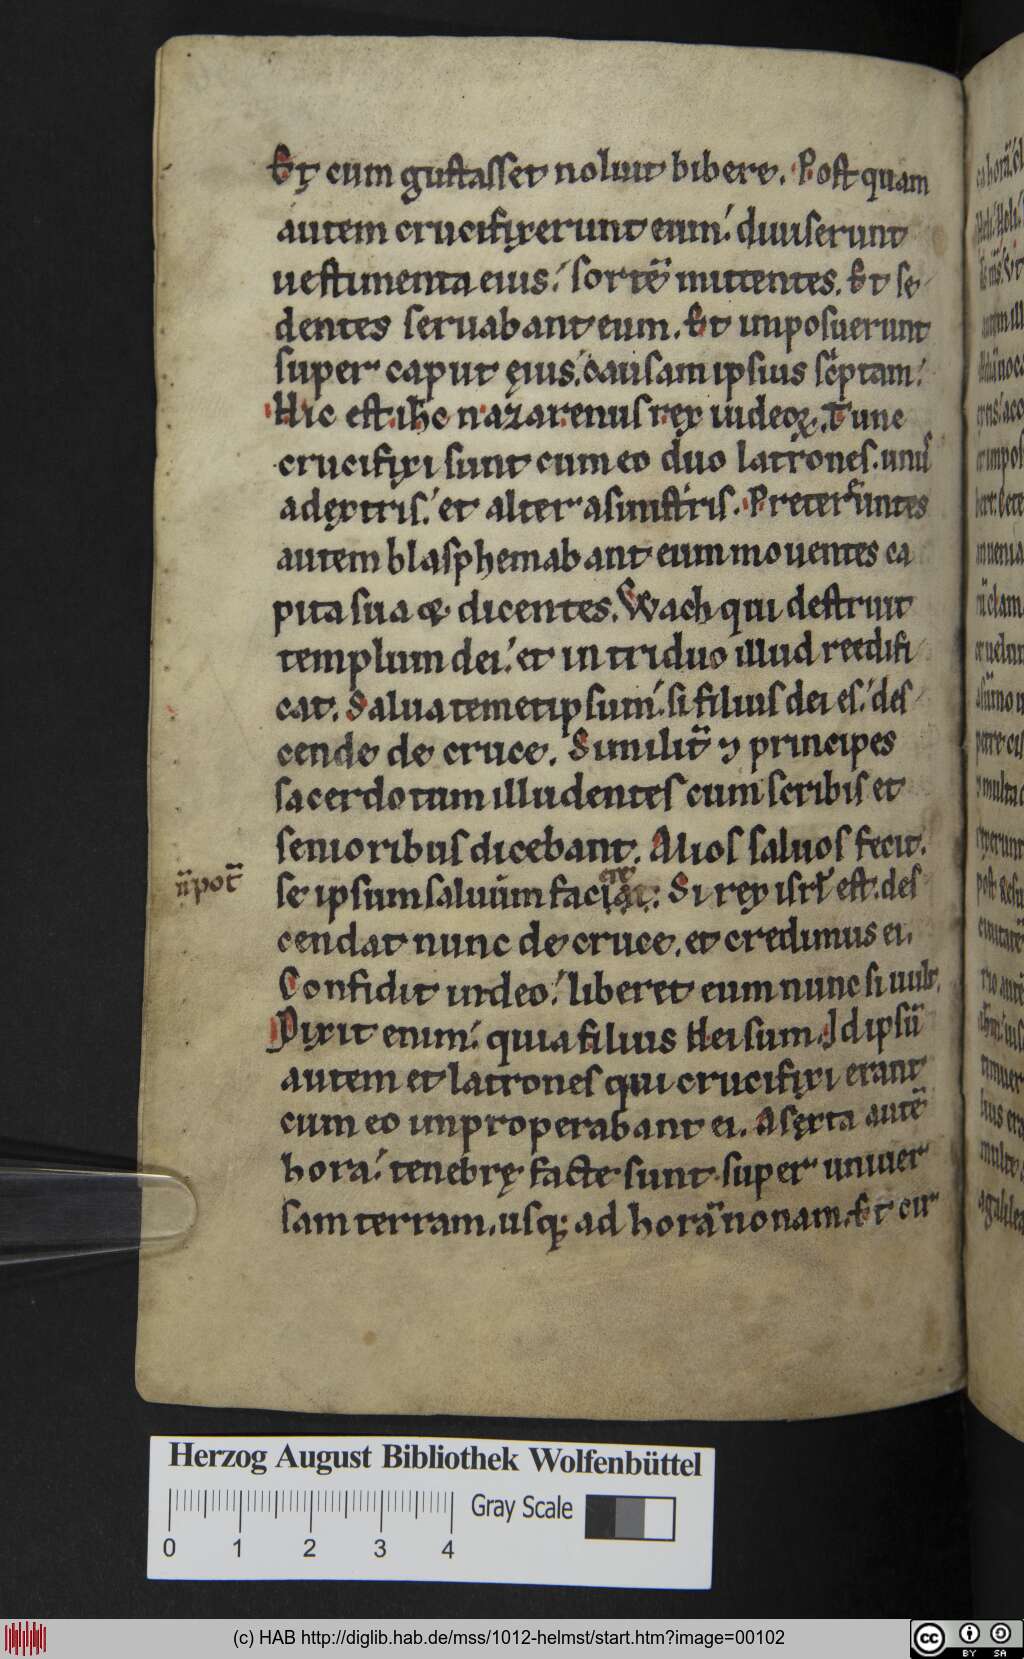 Et cum gustasset noluit bibere. Post quam
autem crucifixerunt eum. diuiserunt
uestimenta eius. sortē mittentes. Et se
dentes seruabant eum. Et imposuerunt
super caput ęius. causam ipsius sc̄ptam.
Hic est ih̄c nazarenus rex iudeoꝝ. Tunc
crucifixi sunt cum eo duo latrones. unus
adextris. et alter asinistris. Pretereuntes
autem blasphemabant eum mouentes ca
pita sua ⁊ dicentes. Wach qui destruit
templum dei. et in triduo illud reedifi
cat. Salua temetipsum. si filius dei es. des
cende de cruce. Similit̄ ⁊ principes
sacerdotum illudentes cum scribis et
senioribus dicebant. Alios saluos fecit.
n̄ pot̄
se ipsum saluum faciat: Si rex isrl̄ est. des
cendat nunc de cruce. et credimus ei.
Confidit in deo. liberet eum nunc si uult.
Dixit enim. quia filius dei sum. Id ipsū
autem et latrones qui crucifixi erant
cum eo improperabant ei. A sexta autē
hora. tenebrę facte sunt super uniuer
sam terram. usq; ad horā nonam. Et cir
Herzog August Bibliothek Wolfenbüttel
Gray Scale
0 1 2 3 4
(c) HAB http://diglib.hab.de/mss/1012-helmst/start.htm?image=00102
cc BY SA